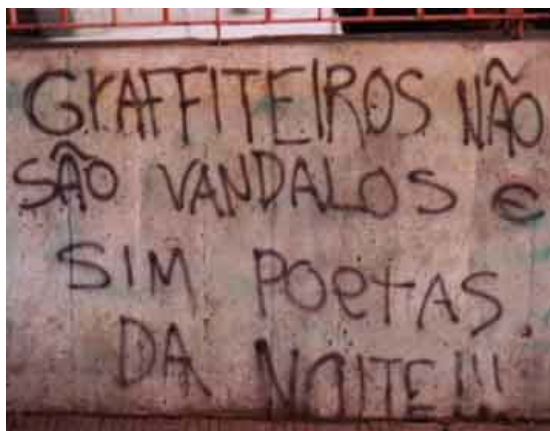 GRAFFITEIROS NÃO
SÃO VANDALOS e
SIM POetAS.
DA NOITE!!!